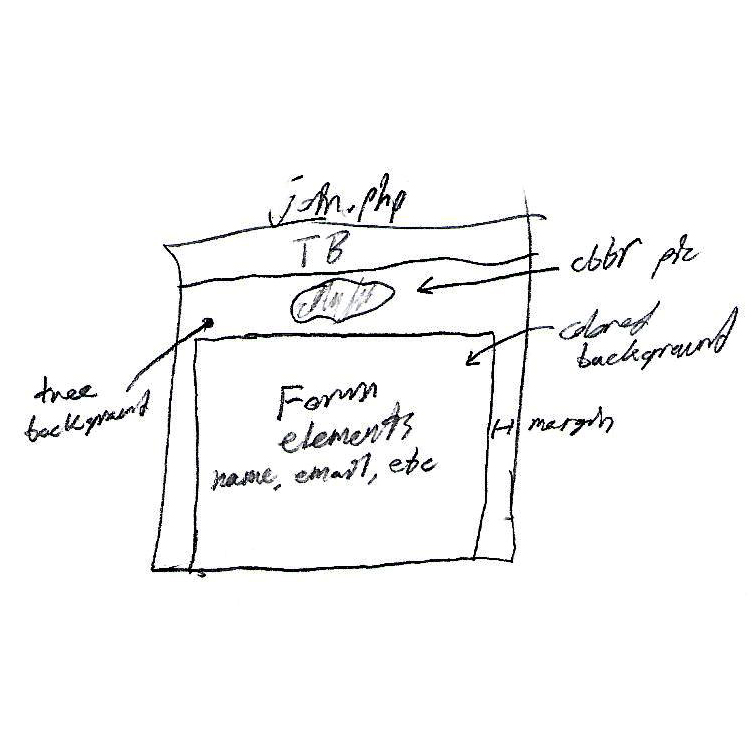 join.php
TB
cbbr pic
colored
background
tree
background
Form
elements
name, email, etc
margin